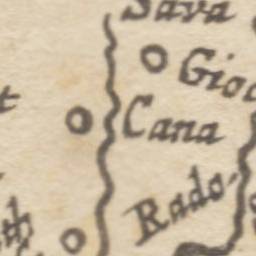 Sava
Gioc
Cana
Rado-